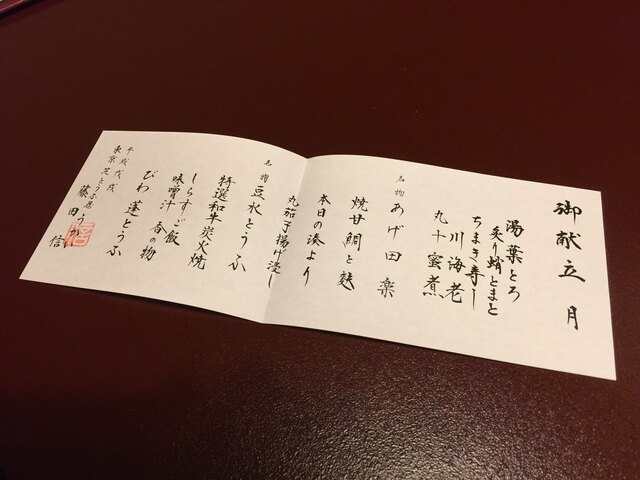 御献立 月
湯葉とろ
炙り蛸とまと
ちまき寿し
川海老
九十蜜煮
名物 あげ田楽
焼甘鯛と麩
本日の湊より
丸茄子揚げ浸し
名物 豆水とうふ
特選和牛炭火焼
しらすご飯
味噌汁 香の物
びわ 蓮とうふ
平成戊戌
東京芝とうふ屋うかい
藤田 信